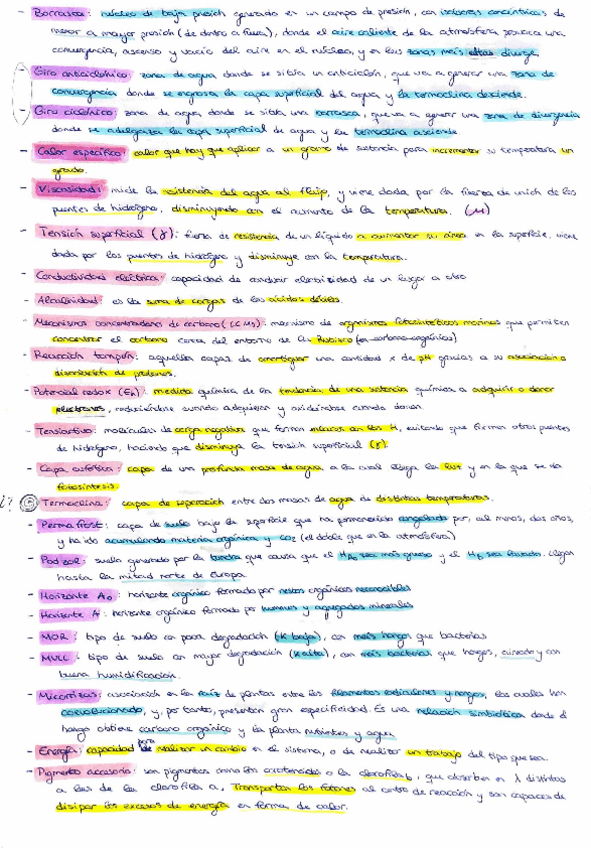 - Borrasca: núcleo de baja presión generado en un campo de presión, con isobaras concéntricas de
menor a mayor presión (de dentro a fuera), donde el aire caliente de la atmósfera provoca una
convergencia, ascenso y vacío del aire en el núcleo, y en las zonas más altas diverge.
- Giro anticiclónico: zona de agua donde se sitúa un anticiclón, que va a generar una zona de
convergencia donde se engrosa la capa superficial del agua y la termoclina desciende.
- Giro ciclónico: zona de agua donde se sitúa una borrasca, que va a generar una zona de divergencia
donde se adelgaza la capa superficial de agua y la termoclina asciende
- Calor específico: calor que hay que aplicar a un gramo de sustancia para incrementar su temperatura un
grado.
- Viscosidad: mide la resistencia del agua al flujo, y viene dada por la fuerza de unión de los
puentes de hidrógeno, disminuyendo con el aumento de la temperatura. (μ)
- Tensión superficial (γ): fuerza de resistencia de un líquido a aumentar su área en la superficie, viene
dada por los puentes de hidrógeno y disminuye con la temperatura.
- Conductividad eléctrica: capacidad de conducir electricidad de un lugar a otro
- Alcalinidad: es la suma de cargas de los ácidos débiles.
- Mecanismos concentradores de carbono (CCMs): mecanismo de organismos fotosintéticos marinos que permiten
concentrar el carbono cerca del entorno de la Rubisco (en carbono orgánico)
- Reacción tampón: aquella capaz de amortiguar una cantidad x de pH gracias a su asociación o
disociación de protones.
- Potencial redox (Eh): medida química de la tendencia de una sustancia química a adquirir o donar
electrones, reduciéndose cuando adquieren y oxidándose cuando donan.
- Tensioactivo: moléculas de carga negativa que forman enlaces con los H, evitando que formen otros puentes
de hidrógeno, haciendo que disminuya la tensión superficial (γ).
- Capa eufótica: capa de una profunda masa de agua, a la cual llega la luz y en la que se da
fotosíntesis.
¿? - Termoclina: capa de separación entre dos masas de agua de distintas temperaturas.
- Permafrost: capa de suelo bajo la superficie que ha permanecido congelada por, al menos, dos años,
y ha ido acumulando materia orgánica y CO2 (el doble que en la atmósfera)
- Podzol: suelo generado por la tundra que causa que el HA sea más grueso y el HB sea lavado. Llegan
hasta la mitad norte de Europa
- Horizonte A0: horizonte orgánico formado por restos orgánicos reconocibles
- Horizonte A: horizonte orgánico formado por humus y agregados minerales
- MOR: tipo de suelo con poca degradación (K baja), con más hongos que bacterias
- MULL: tipo de suelo con mayor degradación (K alta), con más bacterias que hongos, y con
buena humidificación.
- Micorrizas: asociación en la raíz de plantas entre los filamentos radiculares y hongos, los cuales han
coevolucionado, y, por tanto, presentan gran especificidad. Es una relación simbiótica donde el
hongo obtiene carbono orgánico y la planta nutrientes y agua
- Energía: capacidad para realizar un cambio en el sistema, o de realizar un trabajo del tipo que sea.
- Pigmento accesorio: son pigmentos como los carotenoides o la clorofila b, que absorben en λ distintas
a las de la clorofila a. Transportan los fotones al centro de reacción y son capaces de
disipar los excesos de energía en forma de calor.